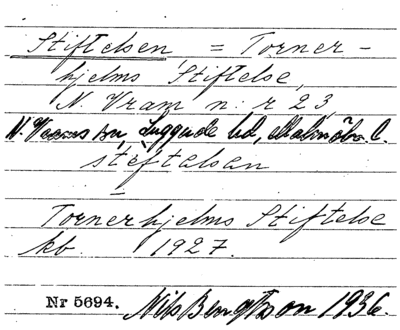 Stiftelsen = Torner-
hjelms Stiftelse,
N. Vram n:r 23,
N. Vrams sn, Luggude hd, Malmöh. l.
stiftalsan
–
Tornerhjelms Stiftelse
kb. 1927.
Nr 5694. Nils Bengtsson 1936.